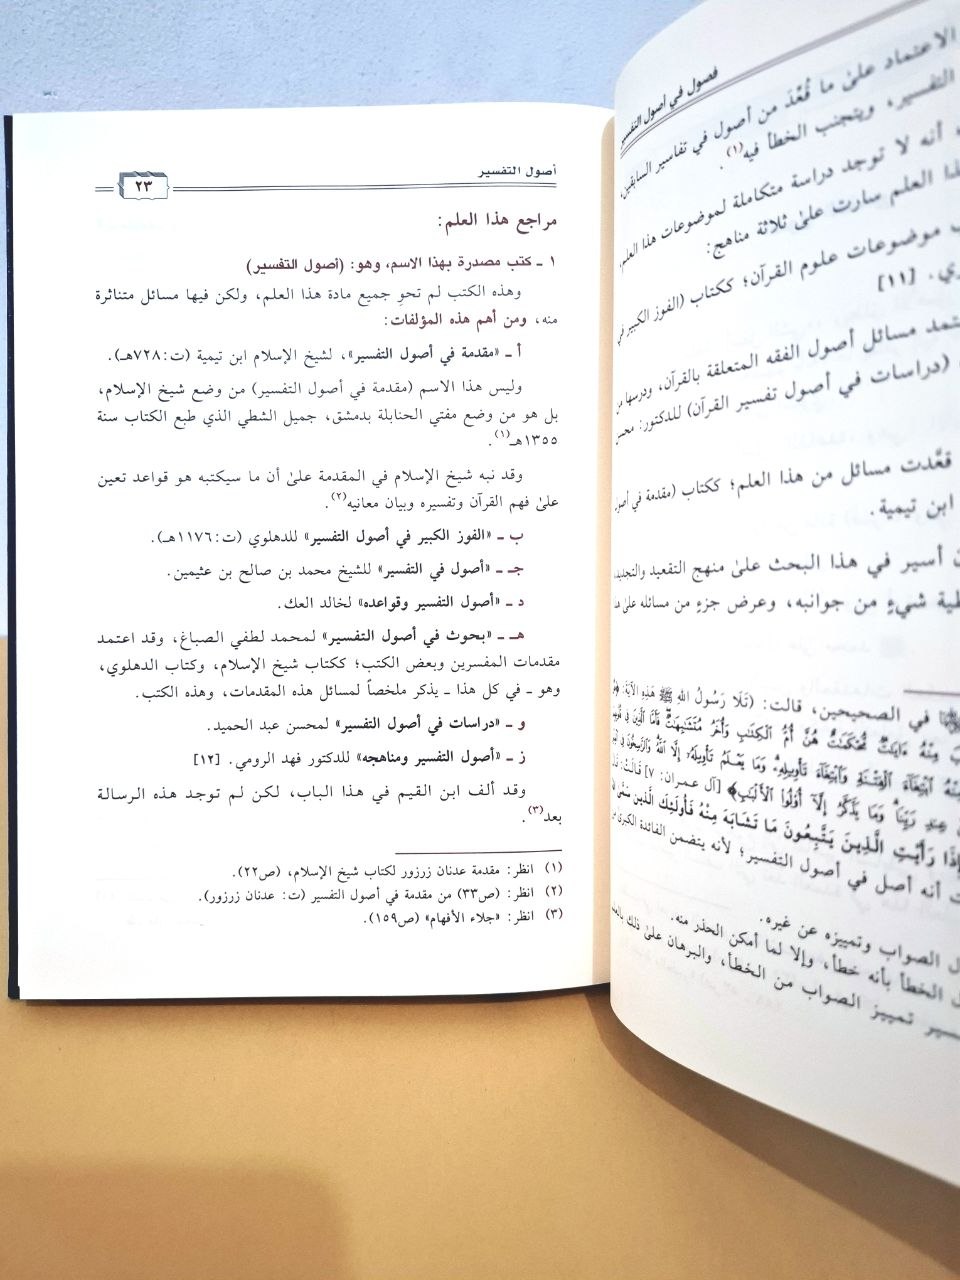 فصول في أصول التفسير
الاعتماد على ما قُعِّدَ من أصول في تفاسير السابقين،
التفسير، ويتجنب الخطأ فيه(١).
أنه لا توجد دراسة متكاملة لموضوعات هذا العلم،
ذا العلم سارت على ثلاثة مناهج:
موضوعات علوم القرآن؛ ككتاب (الفوز الكبير في
ري. [١١]
تمد مسائل أصول الفقه المتعلقة بالقرآن، ودرسها
(دراسات في أصول تفسير القرآن) للدكتور: محسن
قعَّدت مسائل من هذا العلم؛ ككتاب (مقدمة في أصول
ابن تيمية.
أسير في هذا البحث على منهج التقعيد والتجديد،
شيءٍ من جوانبه، وعرض جزءٍ من مسائله على
في الصحيحين، قالت: (تَلَا رَسُولُ اللهِ ﷺ هَذِهِ الآيَةَ:
مِنْهُ ءَايَٰتٌ مُّحْكَمَٰتٌ هُنَّ أُمُّ ٱلْكِتَٰبِ وَأُخَرُ مُتَشَٰبِهَٰتٌ فَأَمَّا ٱلَّذِينَ فِى
مِنْهُ ٱبْتِغَآءَ ٱلْفِتْنَةِ وَٱبْتِغَآءَ تَأْوِيلِهِۦ وَمَا يَعْلَمُ تَأْوِيلَهُۥٓ إِلَّا ٱللَّهُ وَٱلرَّٰسِخُونَ فِى
عِندِ رَبِّنَا وَمَا يَذَّكَّرُ إِلَّآ أُو۟لُوا۟ ٱلْأَلْبَٰبِ﴾ [آل عمران: ٧] قَالَتْ:
إِذَا رَأَيْتِ الَّذِينَ يَتَّبِعُونَ مَا تَشَابَهَ مِنْهُ فَأُولَئِكَ الَّذِينَ سَمَّى
أنه أصل في أصول التفسير؛ لأنه يتضمن الفائدة الكبرى من
الصواب وتمييزه عن غيره.
الخطأ بأنه خطأ، وإلا لما أمكن الحذر منه.
تمييز الصواب من الخطأ، والبرهان على ذلك
أصول التفسير
٢٣
مراجع هذا العلم:
١ ـ كتب مصدرة بهذا الاسم، وهو: (أصول التفسير)
وهذه الكتب لم تحوِ جميع مادة هذا العلم، ولكن فيها مسائل متناثرة
منه، ومن أهم هذه المؤلفات:
أ ـ «مقدمة في أصول التفسير»، لشيخ الإسلام ابن تيمية (ت:٧٢٨هـ).
وليس هذا الاسم (مقدمة في أصول التفسير) من وضع شيخ الإسلام،
بل هو من وضع مفتي الحنابلة بدمشق، جميل الشطي الذي طبع الكتاب سنة
١٣٥٥هـ(١).
وقد نبه شيخ الإسلام في المقدمة على أن ما سيكتبه هو قواعد تعين
على فهم القرآن وتفسيره وبيان معانيه(٢).
ب ـ «الفوز الكبير في أصول التفسير» للدهلوي (ت:١١٧٦هـ).
جـ ـ «أصول في التفسير» للشيخ محمد بن صالح بن عثيمين.
د ـ «أصول التفسير وقواعده» لخالد العك.
هـ ـ «بحوث في أصول التفسير» لمحمد لطفي الصباغ، وقد اعتمد
مقدمات المفسرين وبعض الكتب؛ ككتاب شيخ الإسلام، وكتاب الدهلوي،
وهو ـ في كل هذا ـ يذكر ملخصاً لمسائل هذه المقدمات، وهذه الكتب.
و ـ «دراسات في أصول التفسير» لمحسن عبد الحميد.
ز ـ «أصول التفسير ومناهجه» للدكتور فهد الرومي. [١٢]
وقد ألف ابن القيم في هذا الباب، لكن لم توجد هذه الرسالة
بعد(٣).
(١) انظر: مقدمة عدنان زرزور لكتاب شيخ الإسلام، (ص٢٢).
(٢) انظر: (ص٣٣) من مقدمة في أصول التفسير (ت: عدنان زرزور).
(٣) انظر: «جلاء الأفهام» (ص١٥٩).